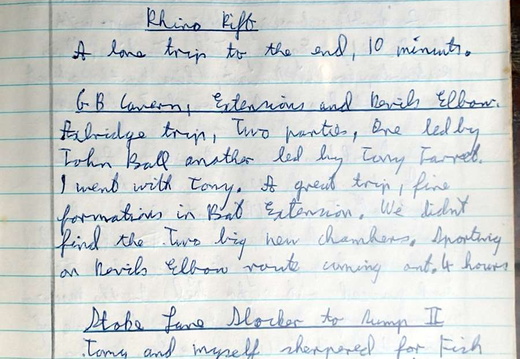 Rhino Rift
A lone trip to the end, 10 minuts.
G B Cavern, Extensions and Devils Elbow.
Axbridge trip, Two parties, One led by
John Ball another led by Tony Jarratt.
I went with Tony. A great trip, fine
formations in Bat Extension. We didn't
find the Two big new chambers. Sporting
on Devils Elbow route coming out. 4 hours
Stoke Lane Slocker to Sump II
Tony and myself sherpered for Fish